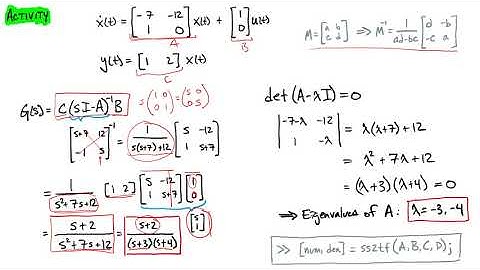 ACTIVITY
ẋ(t) = [-7 -12; 1 0] x(t) + [1; 0] u(t)
A B
y(t) = [1 2] x(t)
C
G(s) = C(sI-A)⁻¹B s(1 0; 0 1) = (s 0; 0 s)
[s+7 12; -1 s]⁻¹ = 1/(s(s+7)+12) [s -12; 1 s+7]
= 1/(s²+7s+12) [1 2] [s -12; 1 s+7] [1; 0]
[s; 1]
= (s+2)/(s²+7s+12) = (s+2)/((s+3)(s+4))
M = [a b; c d] ⇒ M⁻¹ = 1/(ad-bc) [d -b; -c a]
det(A-λI) = 0
|-7-λ -12; 1 -λ| = λ(λ+7)+12
= λ²+7λ+12
= (λ+3)(λ+4) = 0
⇒ Eigenvalues of A: λ=-3,-4
>> [num, den] = ss2tf(A,B,C,D);